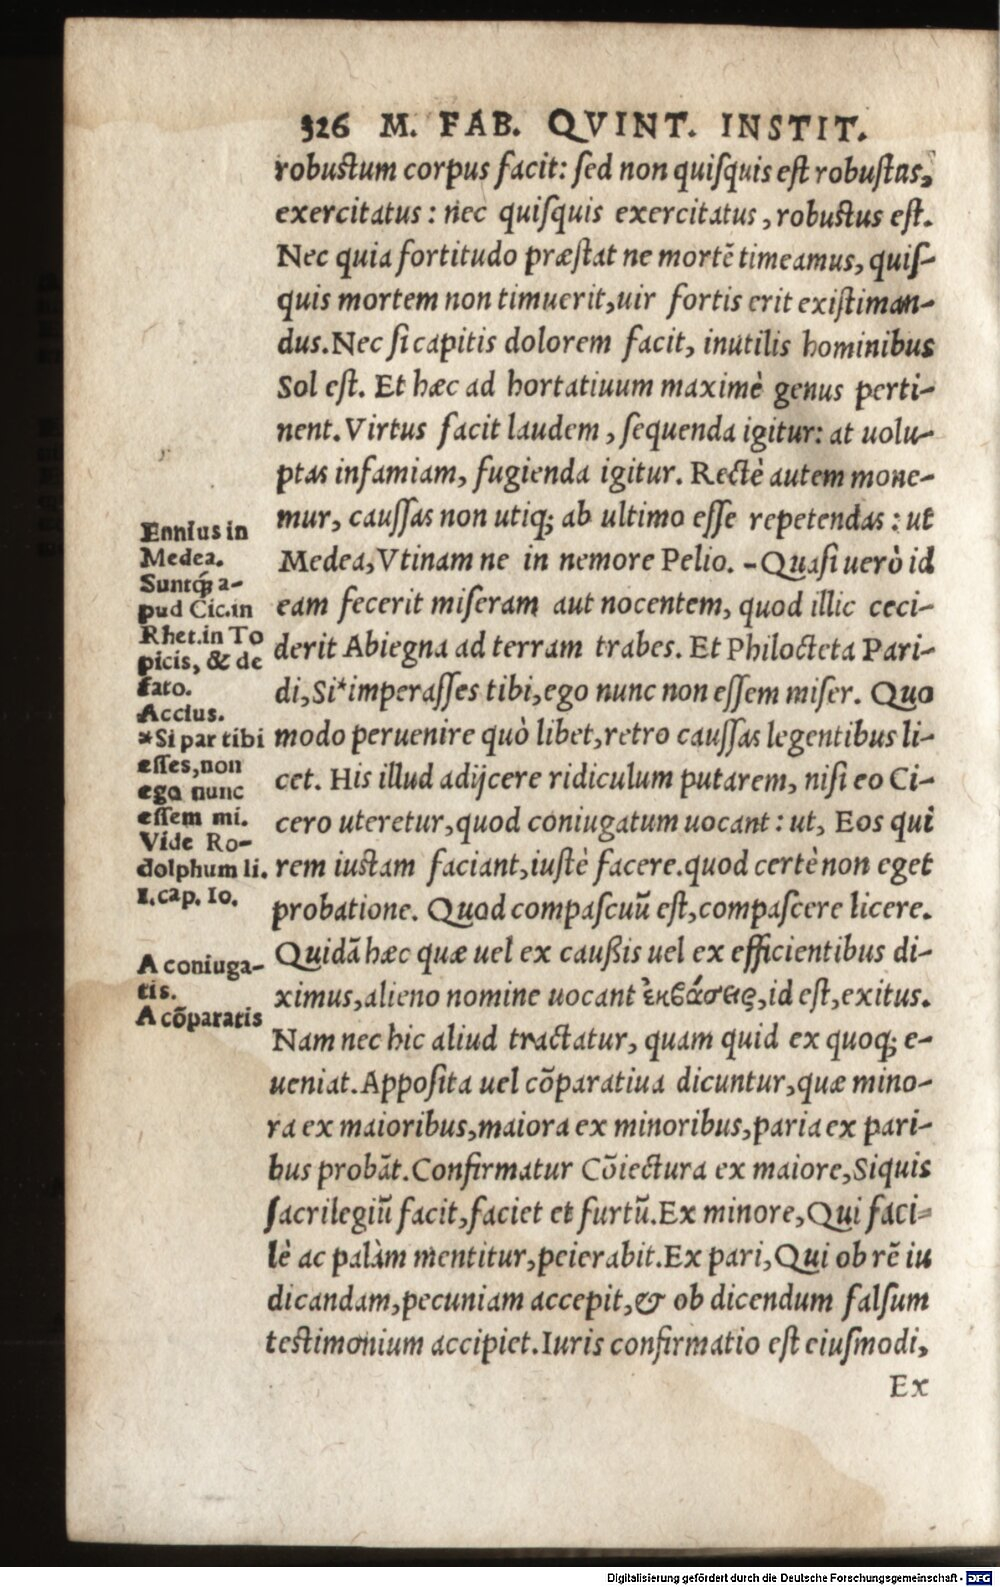 326 M. FAB. QVINT. INSTIT.
robustum corpus facit: ſed non quiſquis eſt robuſtus,
exercitatus: nec quiſquis exercitatus, robustus eſt.
Nec quia fortitudo præſtat ne mortẽ timeamus, quiſ-
quis mortem non timuerit, uir fortis erit exiſtiman-
dus. Nec ſi capitis dolorem facit, inutilis hominibus
Sol eſt. Et hæc ad hortatiuum maximè genus perti-
nent. Virtus facit laudem, ſequenda igitur: at uolu-
ptas infamiam, fugienda igitur. Rectè autem mone-
mur, cauſſas non utiq; ab ultimo eſſe repetendas: ut
Medea, Vtinam ne in nemore Pelio. -Quaſi uerò id
eam fecerit miſeram aut nocentem, quod illic ceci-
derit Abiegna ad terram trabes. Et Philocteta Pari-
di, Si* imperaſſes tibi, ego nunc non eſſem miſer. Quo
modo peruenire quò libet, retro cauſſas legentibus li-
cet. His illud adijcere ridiculum putarem, niſi eo Ci-
cero uteretur, quod coniugatum uocant: ut, Eos qui
rem iustam faciant, iustè facere. quod certè non eget
probatione. Quod compaſcuũ eſt, compaſcere licere.
Quidã hæc quæ uel ex cauſsis uel ex efficientibus di-
ximus, alieno nomine uocant ἐκϐάσεις, id eſt, exitus.
Nam nec hic aliud tractatur, quam quid ex quoq; e-
ueniat. Appoſita uel cõparatiua dicuntur, quæ mino-
ra ex maioribus, maiora ex minoribus, paria ex pari-
bus probãt. Confirmatur Cõiectura ex maiore, Siquis
ſacrilegiũ facit, faciet et furtũ. Ex minore, Qui faci-
lè ac palàm mentitur, peierabit. Ex pari, Qui ob rẽ iu
dicandam, pecuniam accepit, & ob dicendum falſum
testimonium accipiet. Iuris confirmatio eſt eiuſmodi,
Ex
Ennius in
Medea.
Suntq́; a-
pud Cic. in
Rhet. in To
picis, & de
fato.
Accius.
*Si par tibi
eſſes, non
ego nunc
eſſem mi.
Vide Ro-
dolphum li.
1. cap. 10.
A coniuga-
tis.
A cõparatis
Digitalisierung gefördert durch die Deutsche Forschungsgemeinschaft - DFG